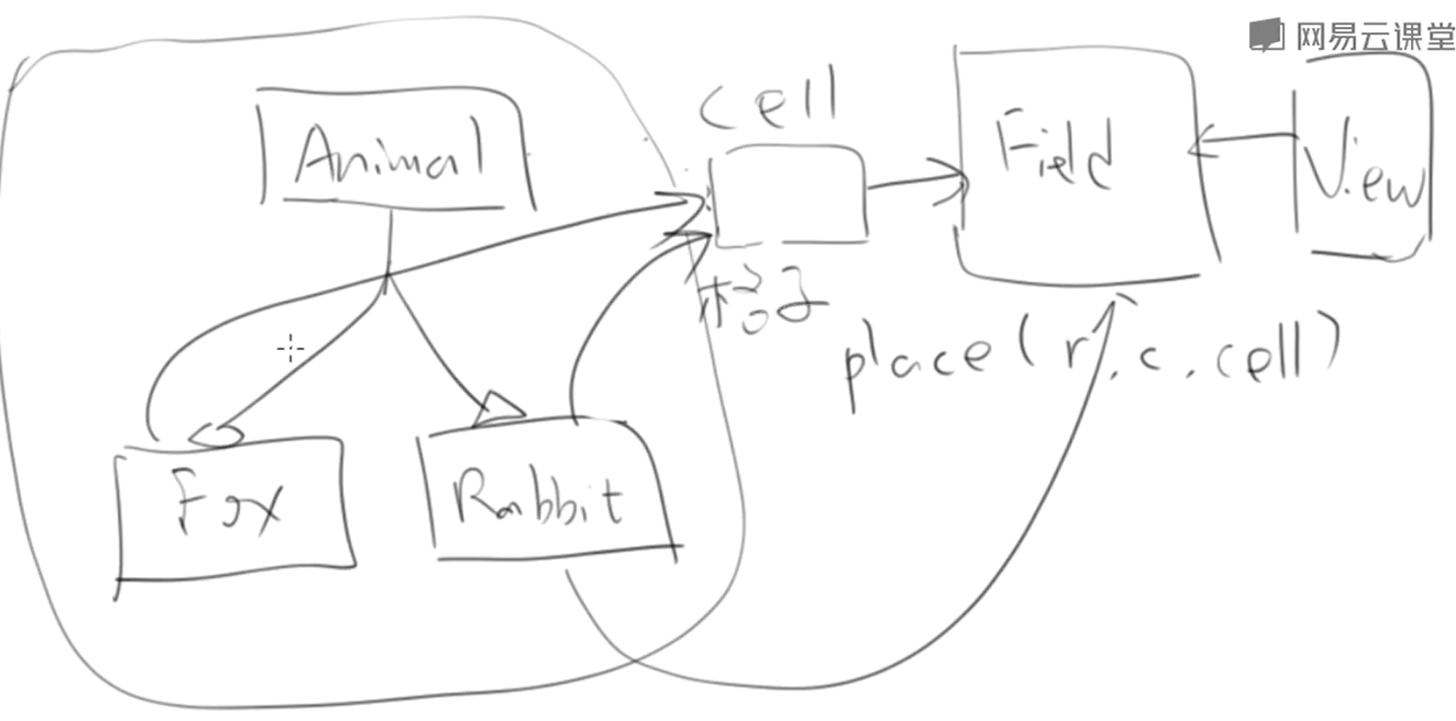 网易云课堂
Animal
cell
Field
View
格子
place(r,c,cell)
Fox
Rabbit